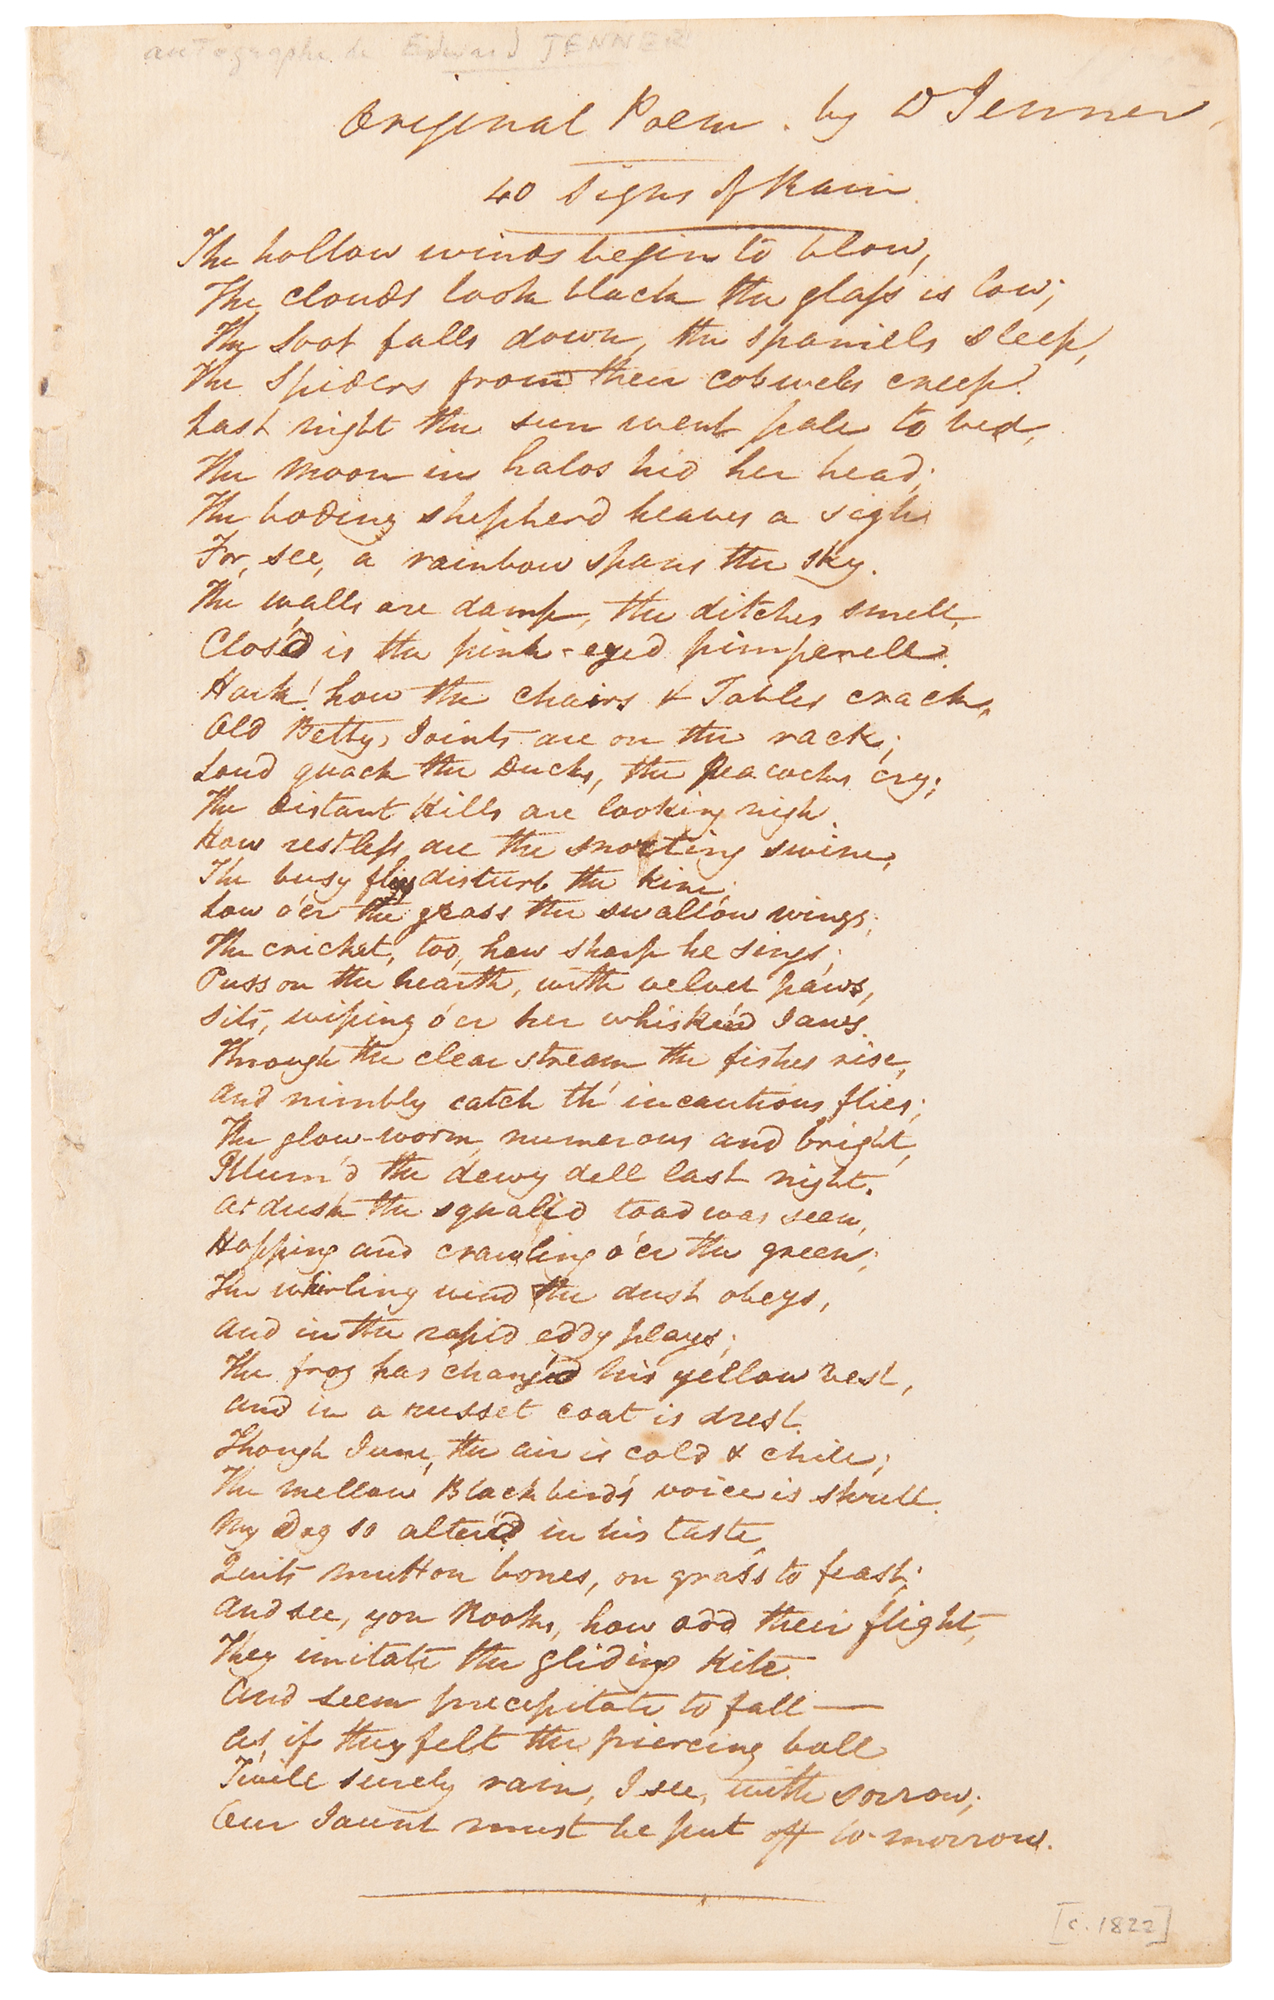 autographe de Edward JENNER
Original Poem. by D Jenner,
40 Signs of Rain.
The hollow winds begin to blow,
The clouds look black the glass is low;
The soot falls down, the spaniels sleep,
The Spiders from their cobwebs creep.
Last night the sun went pale to bed,
The Moon in halos hid her head;
The boding shepherd heaves a sigh
For, see, a rainbow spans the sky.
The walls are damp, the ditches smell,
Clos'd is the pink-eyed pimpenell.
Hark! how the Chairs & Tables crack,
Old Bettys Joints are on the rack;
Loud quack the Ducks, the Peacocks cry;
The Distant Hills are looking nigh.
How restless are the snorting swine,
The busy flys disturb the kine;
Low o'er the grass the swallow wings;
The cricket, too, how sharp he sings;
Puss on the hearth, with velvet paws,
Sits, wiping o'er her whisker'd Jaws.
Through the clear stream the fishes rise,
And nimbly catch th' incautious flies;
The glow-worm, numerous and bright,
Illum'd the dewy dell last night.
At dusk the squalid toad was seen,
Hopping and crawling o'er the green;
The whirling wind the dust obeys,
And in the rapid eddy plays;
The frog has chang'd his yellow vest,
And in a russet coat is drest.
Though June, the air is cold & chill;
The mellow Blackbird's voice is shrill.
My Dog so alter'd in his taste
Quits mutton bones, on grass to feast;
And see, yon Rooks, how odd their flight,
They imitate the gliding kite.
And seem precepitate to fall —
As if they felt the piercing ball
Twill surely rain, I see, with sorrow;
Our Jaunt must be put off to-morrow.
[c. 1822]